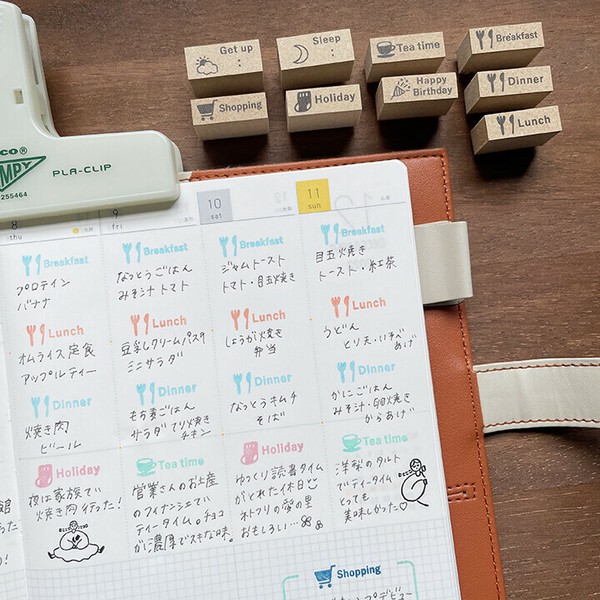 Get up
:
Sleep
:
Tea time
Breakfast
Shopping
Holiday
Happy
Birthday
Dinner
Lunch
CO
MPY
255464
PLA-CLIP
8
thu
9
fri
10
sat
11
sun
Breakfast
プロテイン
バナナ
Lunch
オムライス定食
アップルティー
Dinner
焼き肉
ビール
Holiday
夜は家族で
焼き肉行った!
Breakfast
なっとうごはん
みそ汁トマト
Lunch
豆乳クリームパスタ
ミニサラダ
Dinner
もち麦ごはん
サラダ てり焼き
チキン
Tea time
営業さんのお土産
のフィナンシェで
ティータイム。チョコ
が濃厚でステキな味。
Breakfast
ジャムトースト
トマト・目玉焼き
Lunch
しょうが焼き
弁当
Dinner
なっとうキムチ
そば
Holiday
ゆっくり読書タイム
がとれた休日
ネトフリの愛の里
おもしろい…
Breakfast
目玉焼き
トースト・紅茶
Lunch
うどん
とり天・いそべ
あげ
Dinner
かにごはん
みそ汁・卵焼き
からあげ
Tea time
洋梨のタルト
でティータイム
とっても
美味しかった♡
Shopping